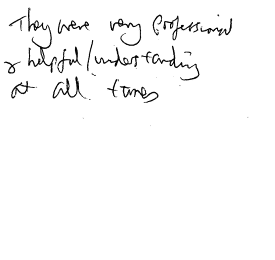 They were very professional
& helpful/understanding
at all times